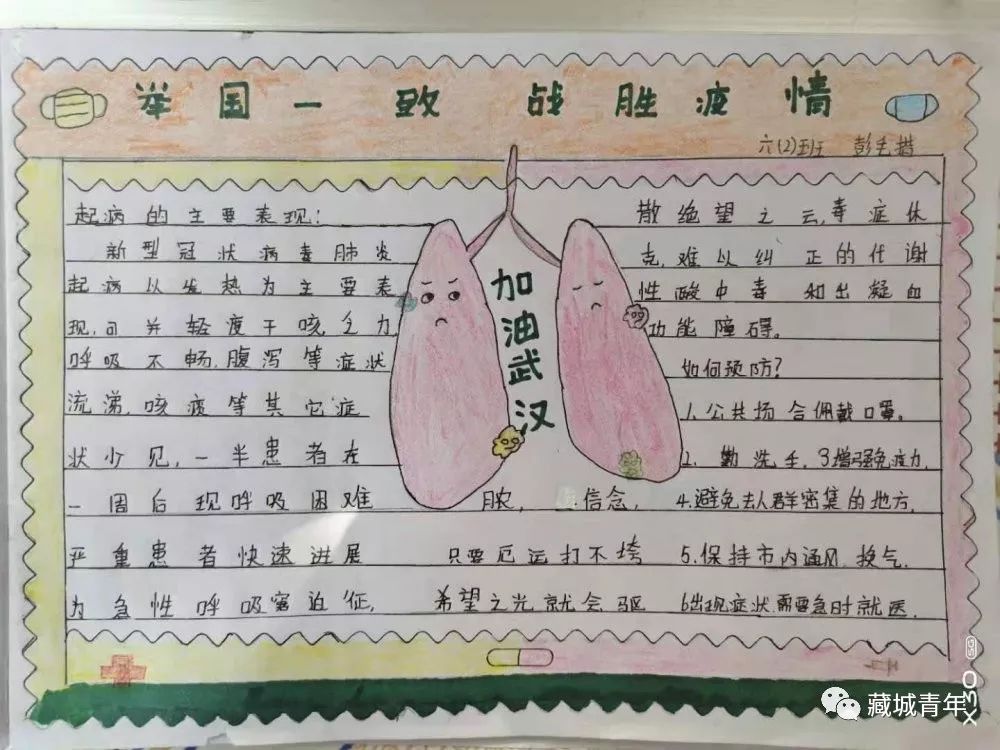 举国一致 战胜疫情
六(2)班 彭毛措
起病的主要表现:
新型冠状病毒肺炎
起病以发热为主要表
现,可并轻度干咳乏力,
呼吸不畅,腹泻等症状
流涕,咳痰等其它症
状少见,一半患者在
一周后现呼吸困难
严重患者快速进展
为急性呼吸窘迫征,
加油武汉
脓, 信念,
只要厄运打不垮
希望之光就会驱
散绝望之云,毒症休
克,难以纠正的代谢
性酸中毒和出凝血
功能障碍。
如何预防?
1.公共场合佩戴口罩。
2.勤洗手,3增强免疫力,
4.避免去人群密集的地方,
5.保持市内通风,换气.
6出现症状,需要急时就医.
藏城青年
X30 5G